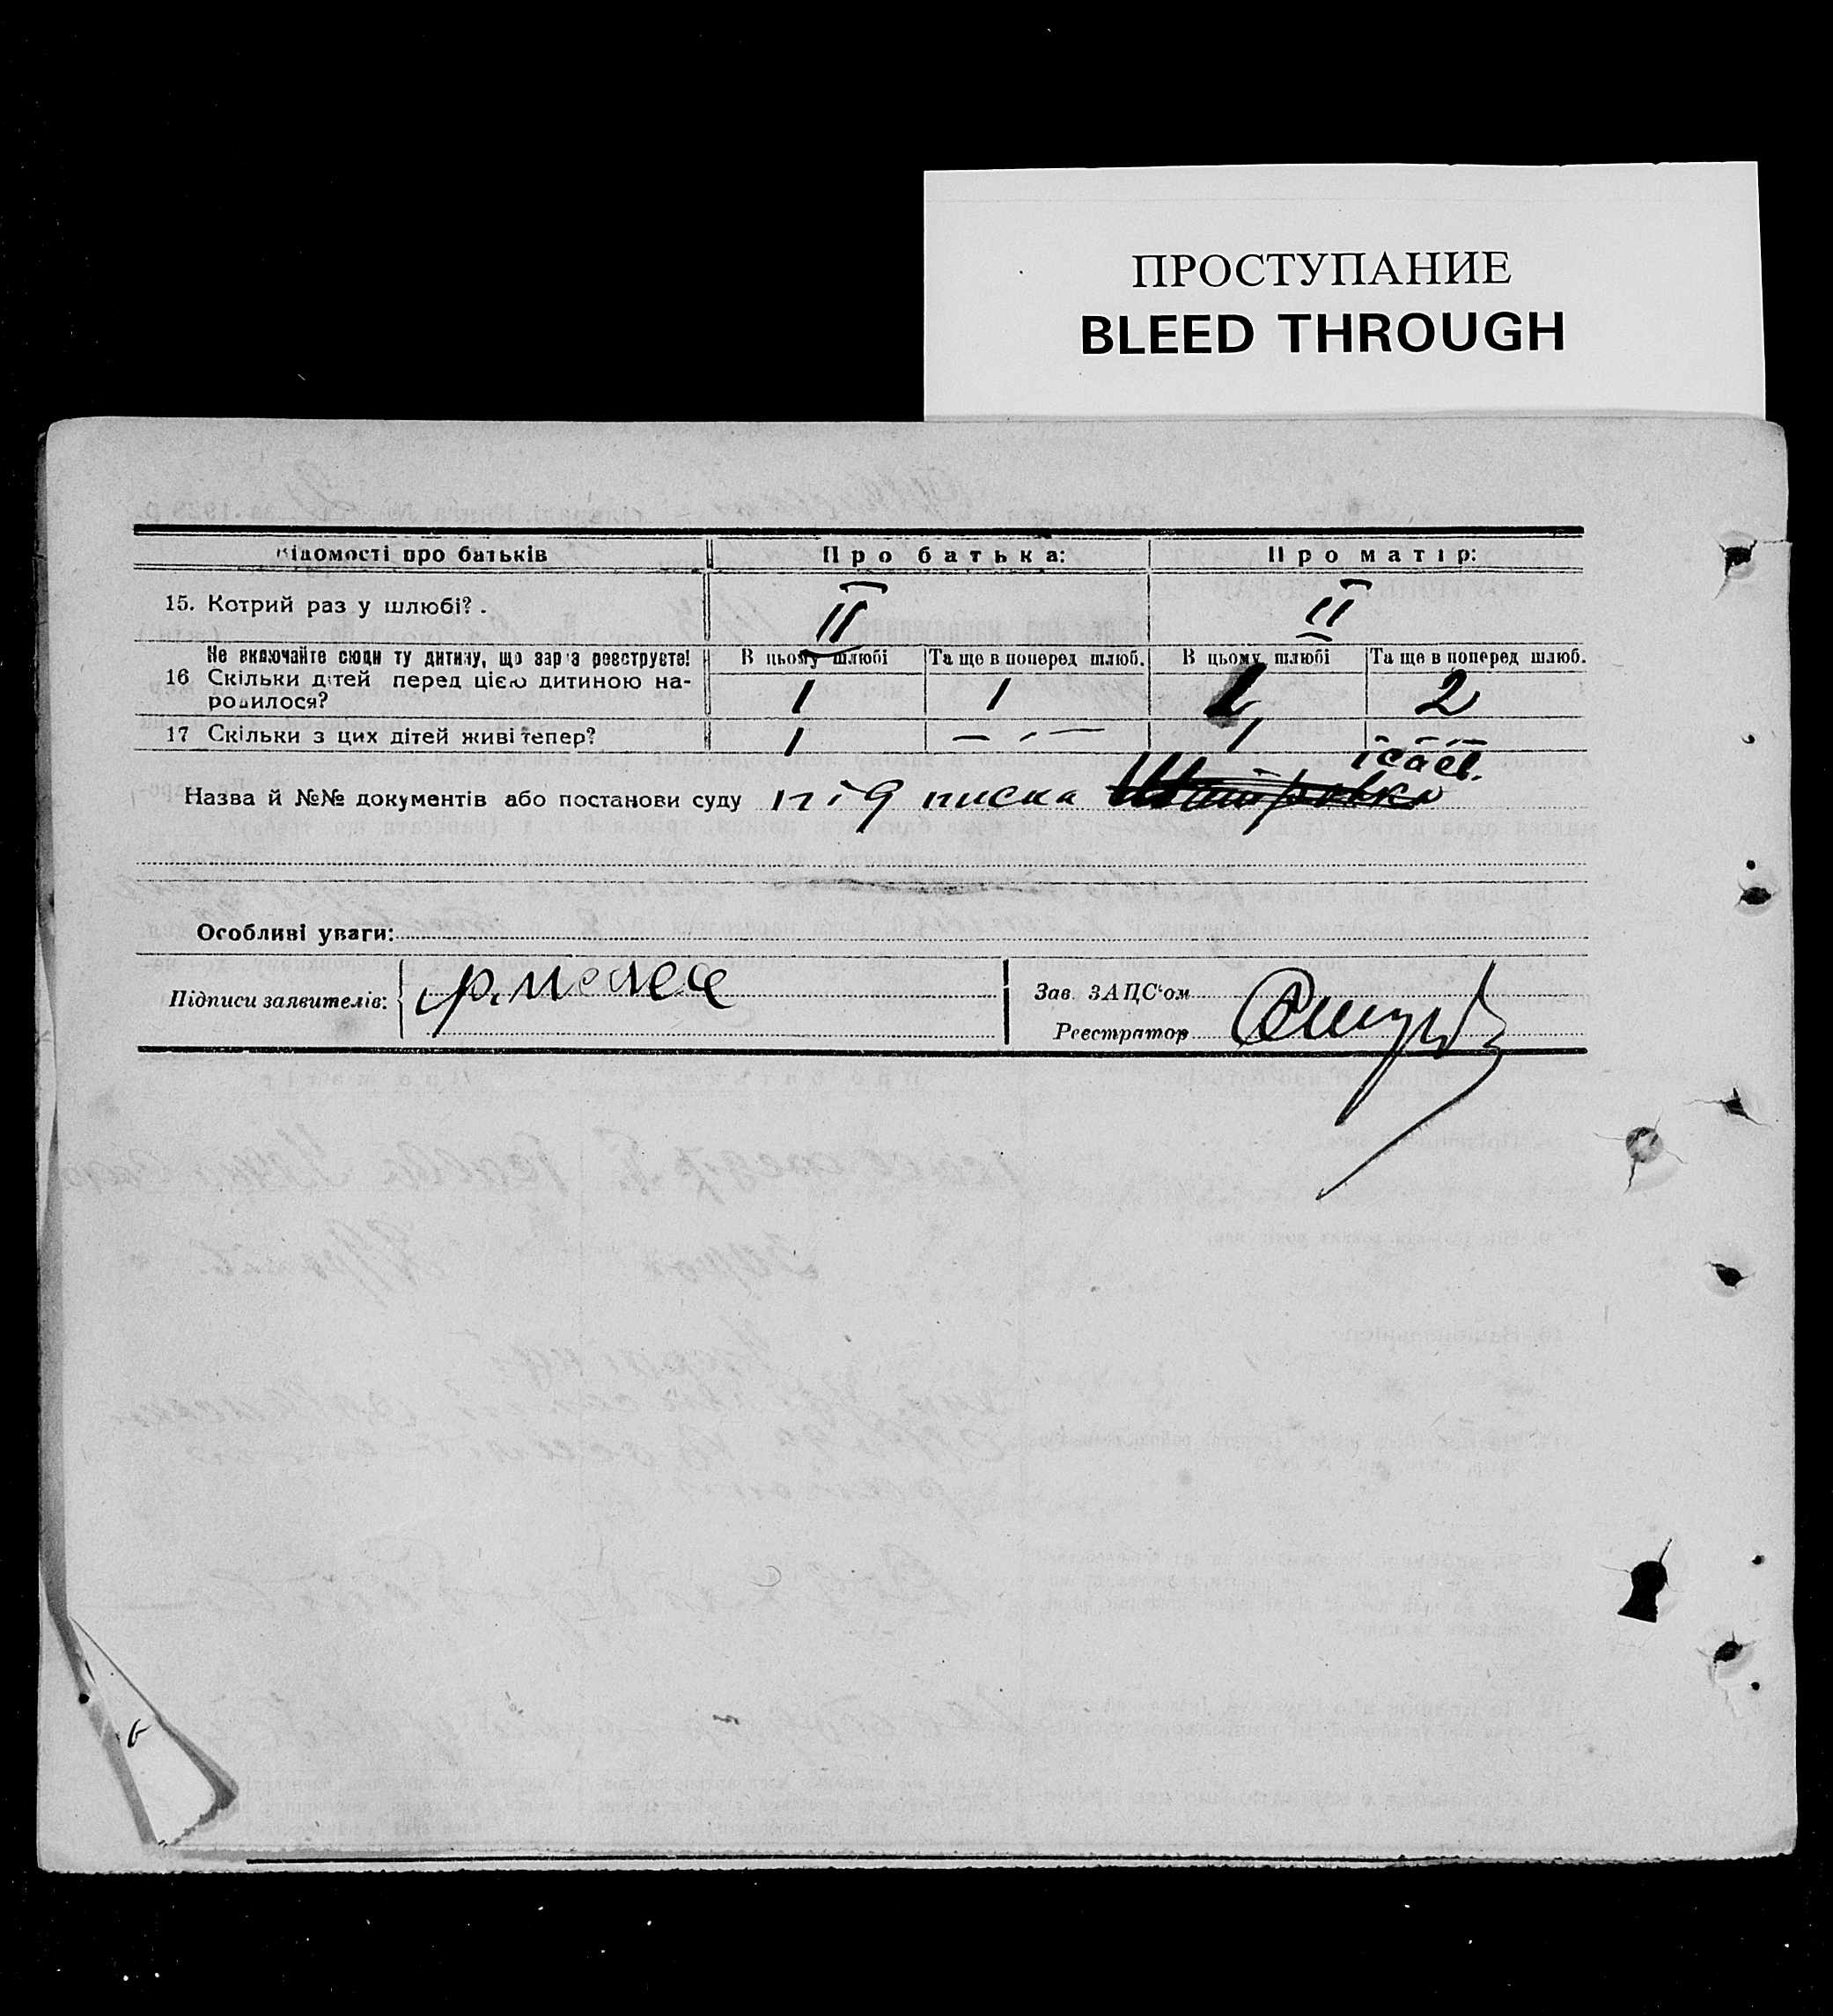 ПРОСТУПАНИЕ
BLEED THROUGH
Відомості про батьків Про батька: Про матір:
15. Котрий раз у шлюбі? . II II
Не включайте сюди ту дитину, що зараз реєструєте! В цьому шлюбі Та ще в поперед шлюб. В цьому шлюбі Та ще в поперед шлюб.
16 Скільки дітей перед цією дитиною на-
родилося? 1 1 1 2
17 Скільки з цих дітей живі тепер? 1 — · — 1 — — —
Назва й №№ документів або постанови суду підписка
Особливі уваги:
Підписи заявителів:
Зав. ЗАЦС'ом
Реєстратор